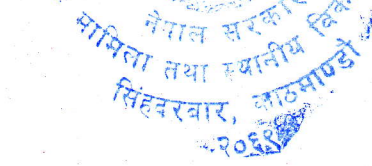 नेपाल सरकार
मामिला तथा स्थानीय
सिंहदरवार, काठमाण्डौ